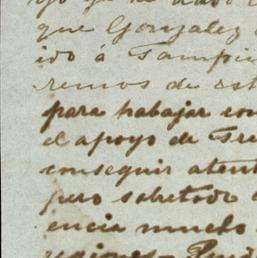 que Gonzalez
ido á Tampi
remos de est
para habajar con
el apoyo de Tre
conseguir atent
pero sobretodo
encia mucho